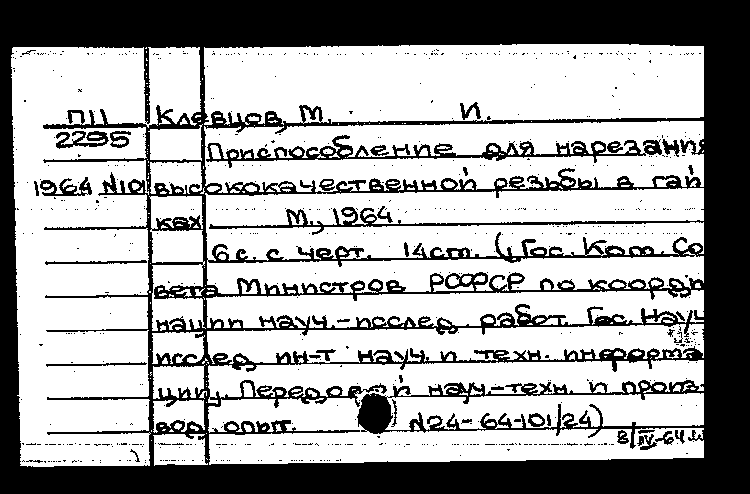 П11 Клевцов, М. И.
2295
Приспособление для нарезания
1964 N101 высококачественной резьбы в гай
ках М., 1964.
6 с. с черт. 14 ст. (Гос. Ком. Со
вета Министров РСФСР по коорди
нации науч.-исслед. работ. Гос. Науч
исслед. ин-т науч. и техн. информа
ции. Передовой науч.-техн. и произ-
вод. опыт. N24-64-101/24)